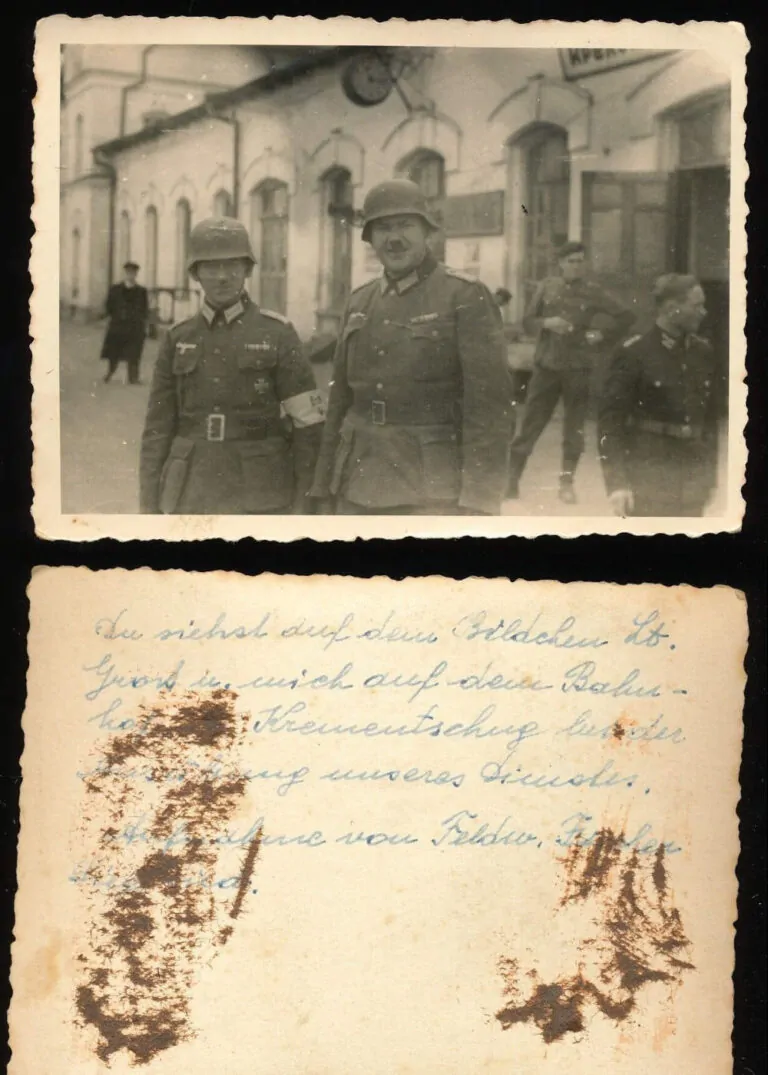 КРЕМ
Du siehst auf dem Bildchen Lt.
u. mich auf dem Bahn-
Krementschug bei der
unseres Dienstes.
Aufnahme von Feldw.